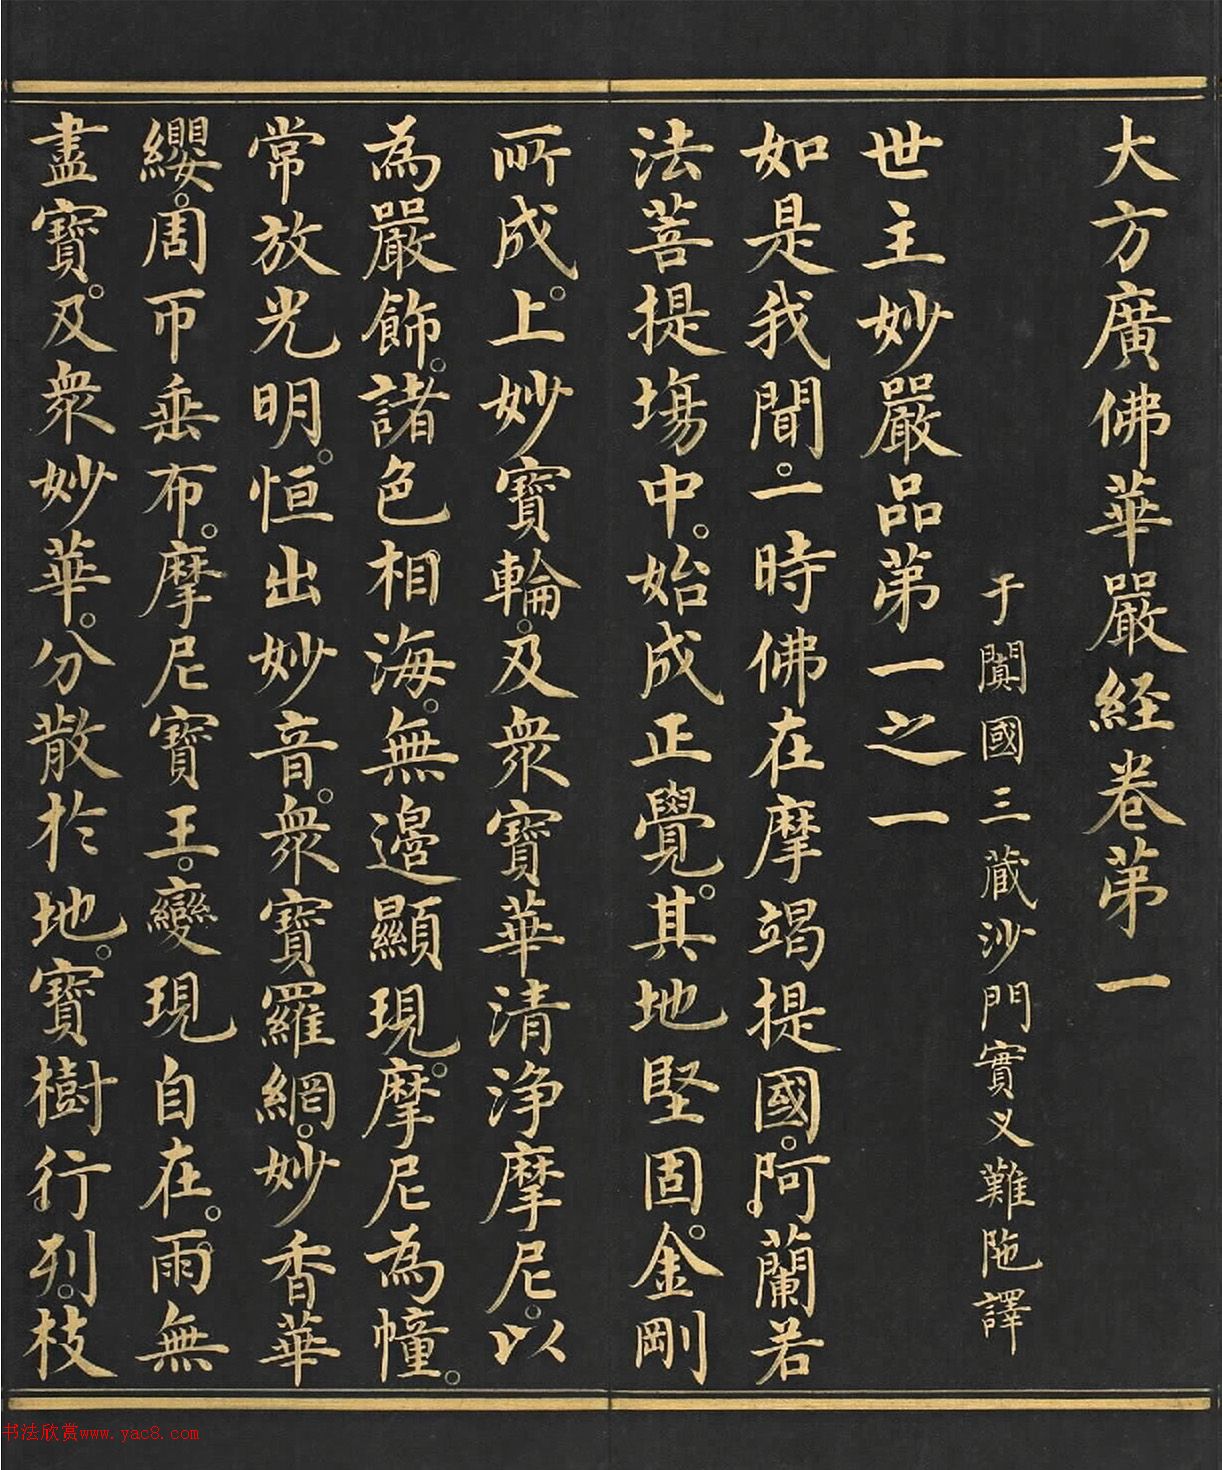 大方廣佛華嚴経卷苐一
于闐國三蔵沙門實义難陁譯
世主妙嚴品苐一之一
如是我聞。一時佛在摩竭提國。阿蘭若
法菩提場中。始成正覺。其地堅固。金剛
所成。上妙寶輪。及衆寶華清浄摩尼。以
為嚴飾。諸色相海。無邊顯現。摩尼為幢。
常放光明。恒出妙音。衆寶羅網。妙香華
纓。周帀垂布。摩尼寶王。變現自在。雨無
盡寶。及衆妙華。分散於地。寶樹行列。枝
书法欣赏www.yac8.com